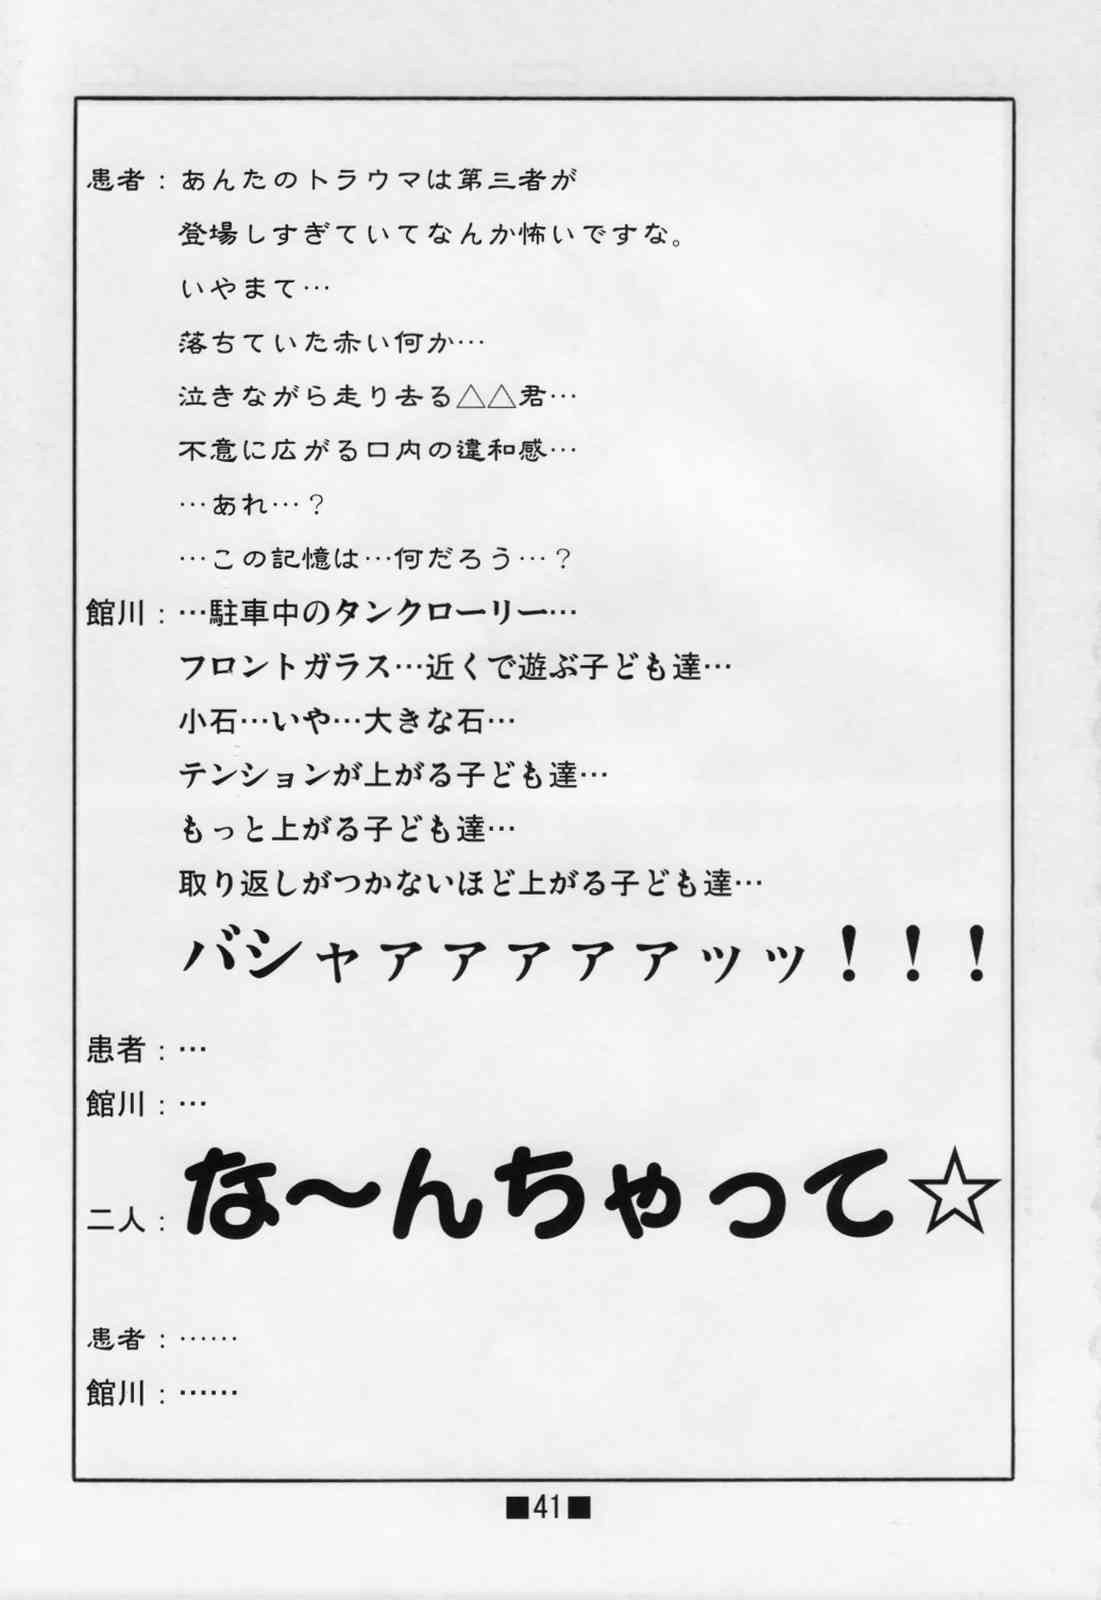 患者：あんたのトラウマは第三者が
登場しすぎていてなんか怖いですな。
いやまて…
落ちていた赤い何か…
泣きながら走り去る△△君…
不意に広がる口内の違和感…
…あれ…？
…この記憶は…何だろう…？
館川：…駐車中のタンクローリー…
フロントガラス…近くで遊ぶ子ども達…
小石…いや…大きな石…
テンションが上がる子ども達…
もっと上がる子ども達…
取り返しがつかないほど上がる子ども達…
バシャァァァァァッッ！！！
患者：…
館川：…
二人：な～んちゃって☆
患者：……
館川：……
■41■